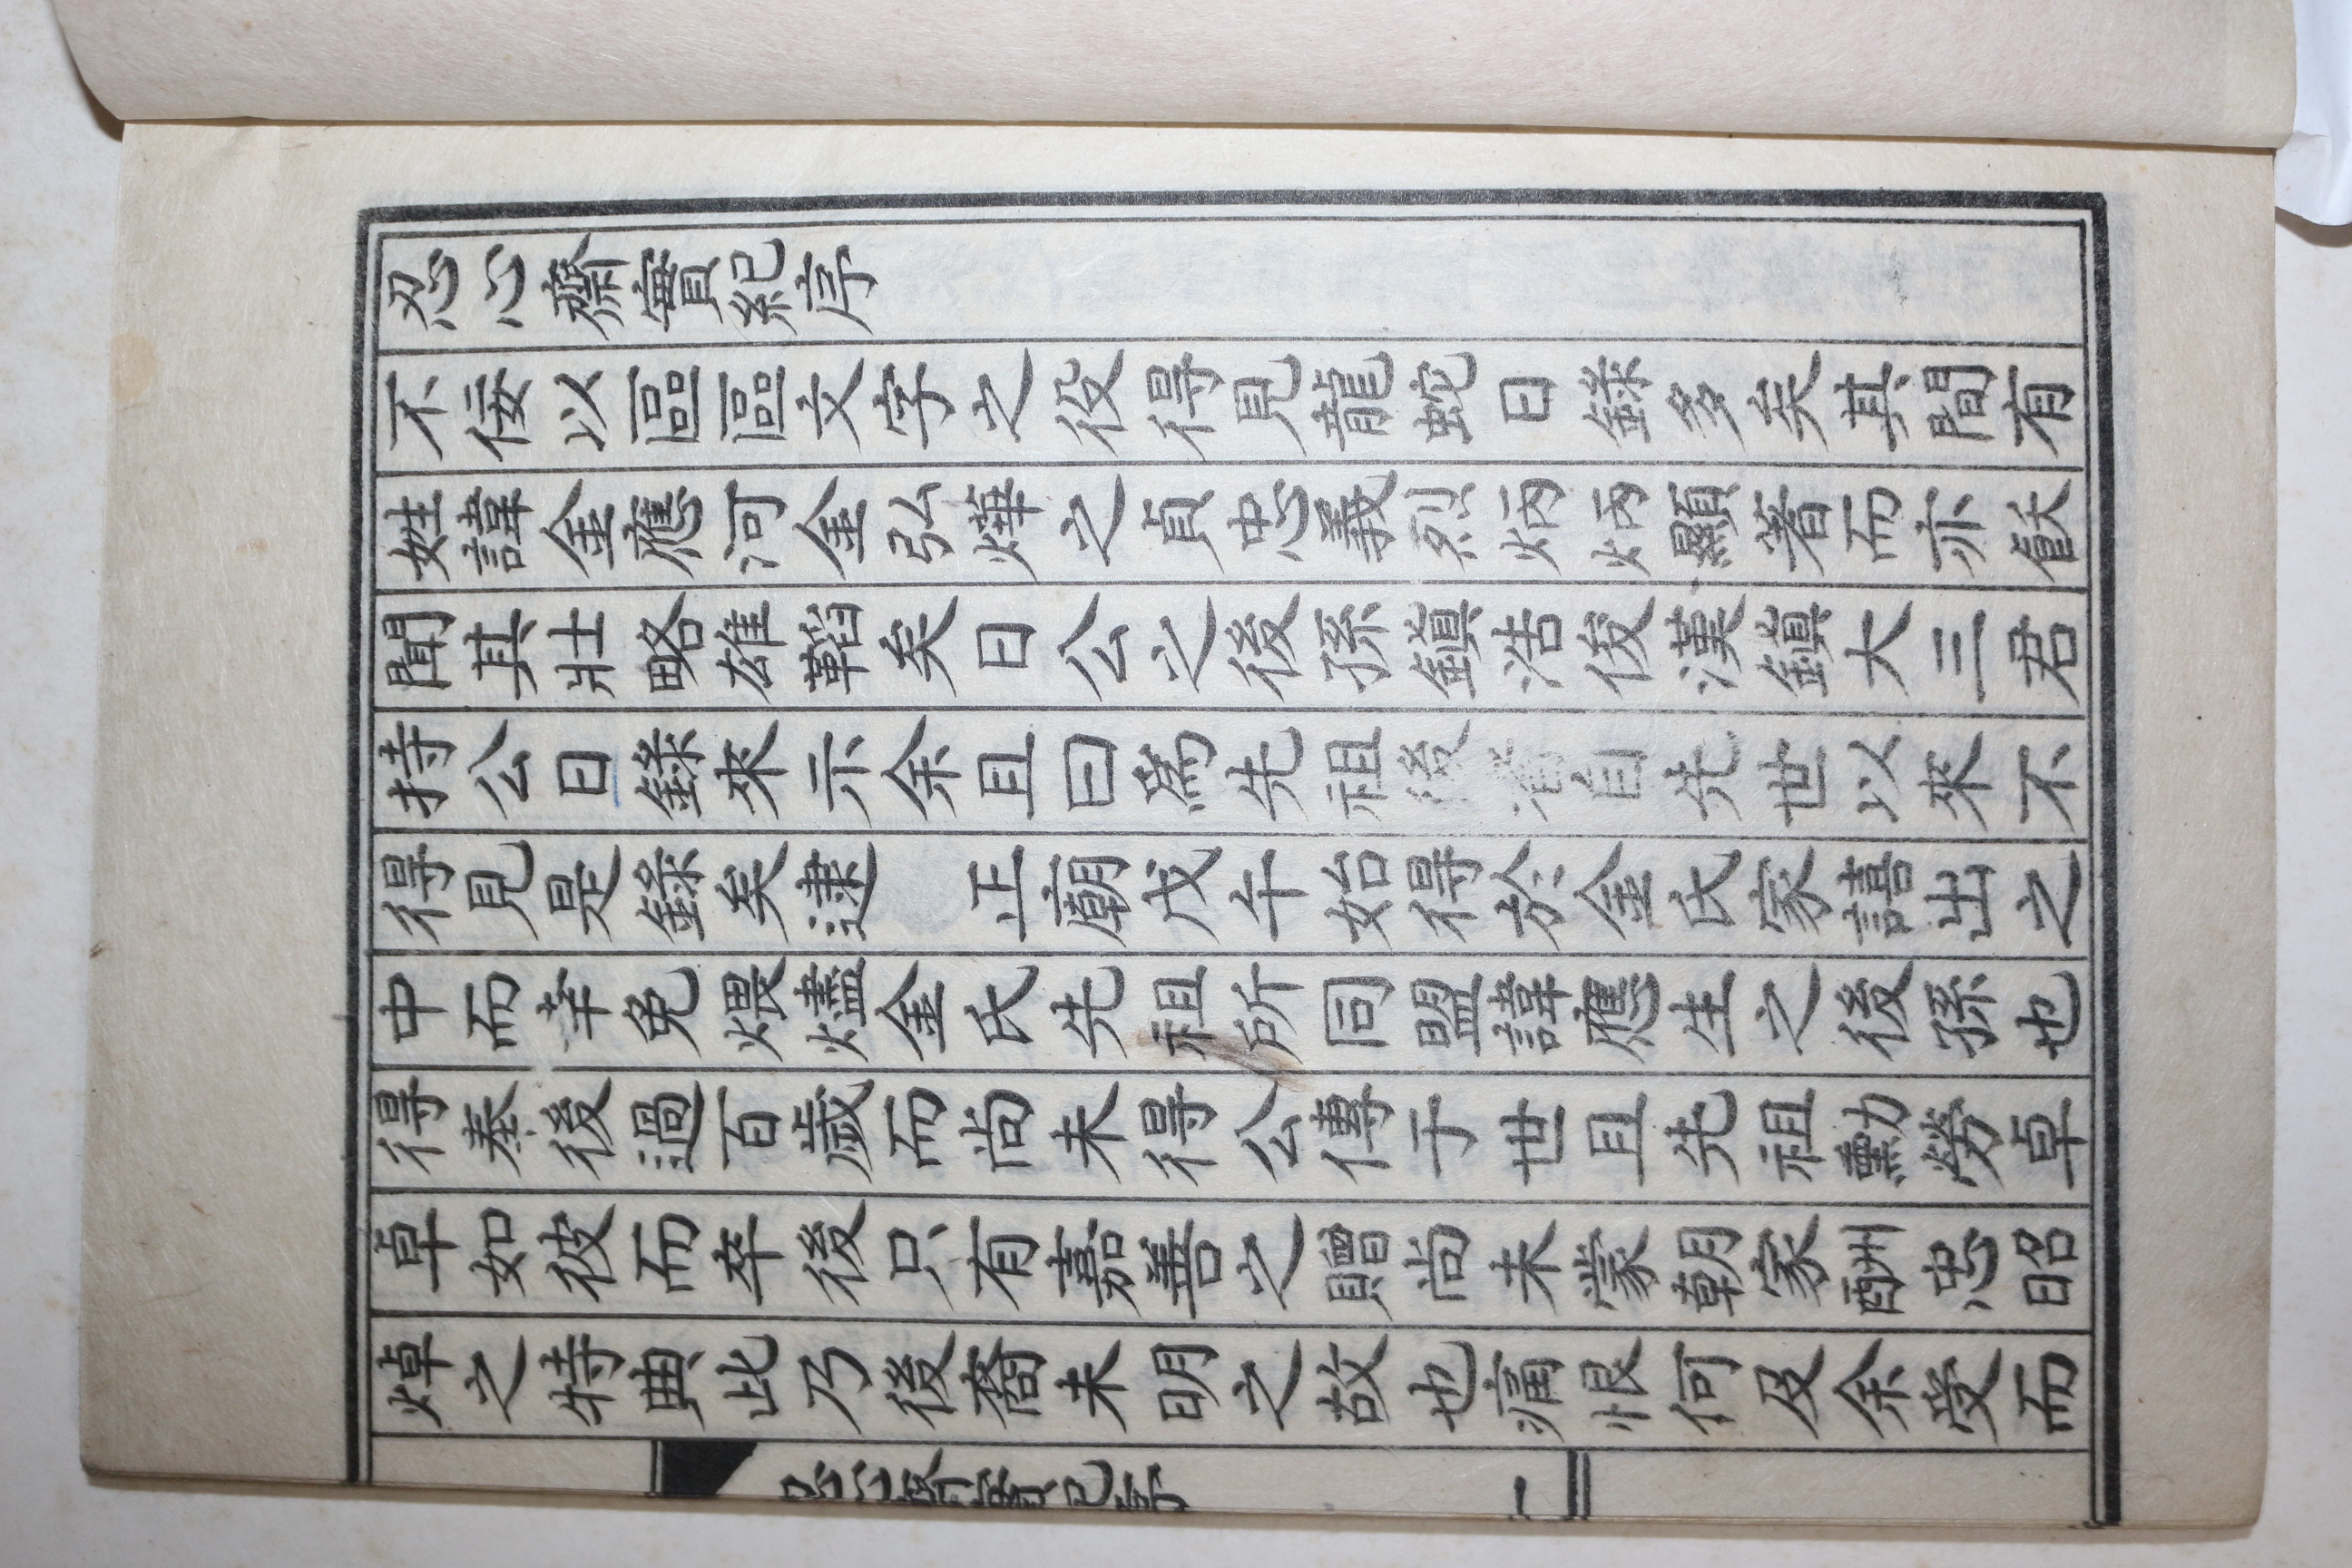 忍心齋實紀序
不佞以區區文字之役得見龍蛇日錄多矣其間有
姓諱金應河金弘燁之貞忠義烈炳炳顯著而亦飫
聞其壯略雄韜矣日公之後孫鎭浩俊漢鎭大三君
持公日錄來示余且曰爲先祖後者自先世以來不
得見是錄矣逮　正廟戊午始得於金氏家譆出之
中而幸免煨燼金氏先祖所同盟諱應生之後孫也
得奉後過百歲而尚未得公傳于世且先祖勳勞卓
卓如彼而卒後只有嘉善之贈尚未蒙朝家酬忠昭
焯之特典此乃後裔未明之故也痛恨何及余受而
忍心齋實紀序
一